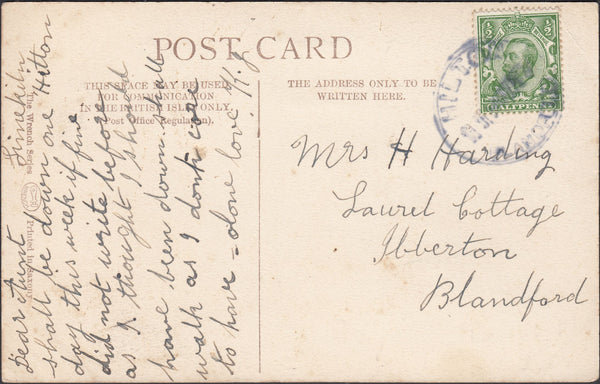 POST CARD
THIS SPACE MAY BE USED
FOR COMMUNICATION
IN THE BRITISH ISLES ONLY.
(Post Office Regulation).
THE ADDRESS ONLY TO BE
WRITTEN HERE.
HALFPENNY
Mrs H Harding
Laurel Cottage
Ibberton
Blandford
The Wrench Series
Printed in Saxony
Limekiln
Hilton
Dear Aunt
shall be down one
day this week if fine
did not write before
as I thought I should
have been down shall
walk as I dont care
to have love